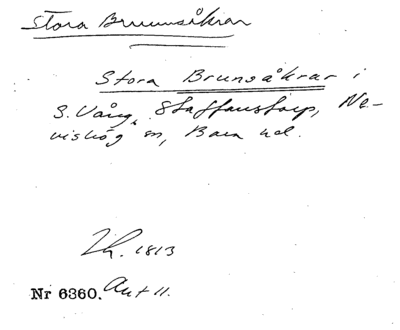 Stora Brunnsåkrar
Stora Brunsåkrar i
S. Vång, Staffanstorp, Ne-
vishög sn, Bara hd.
Lh. 1813
Nr 6360. Akt 11.